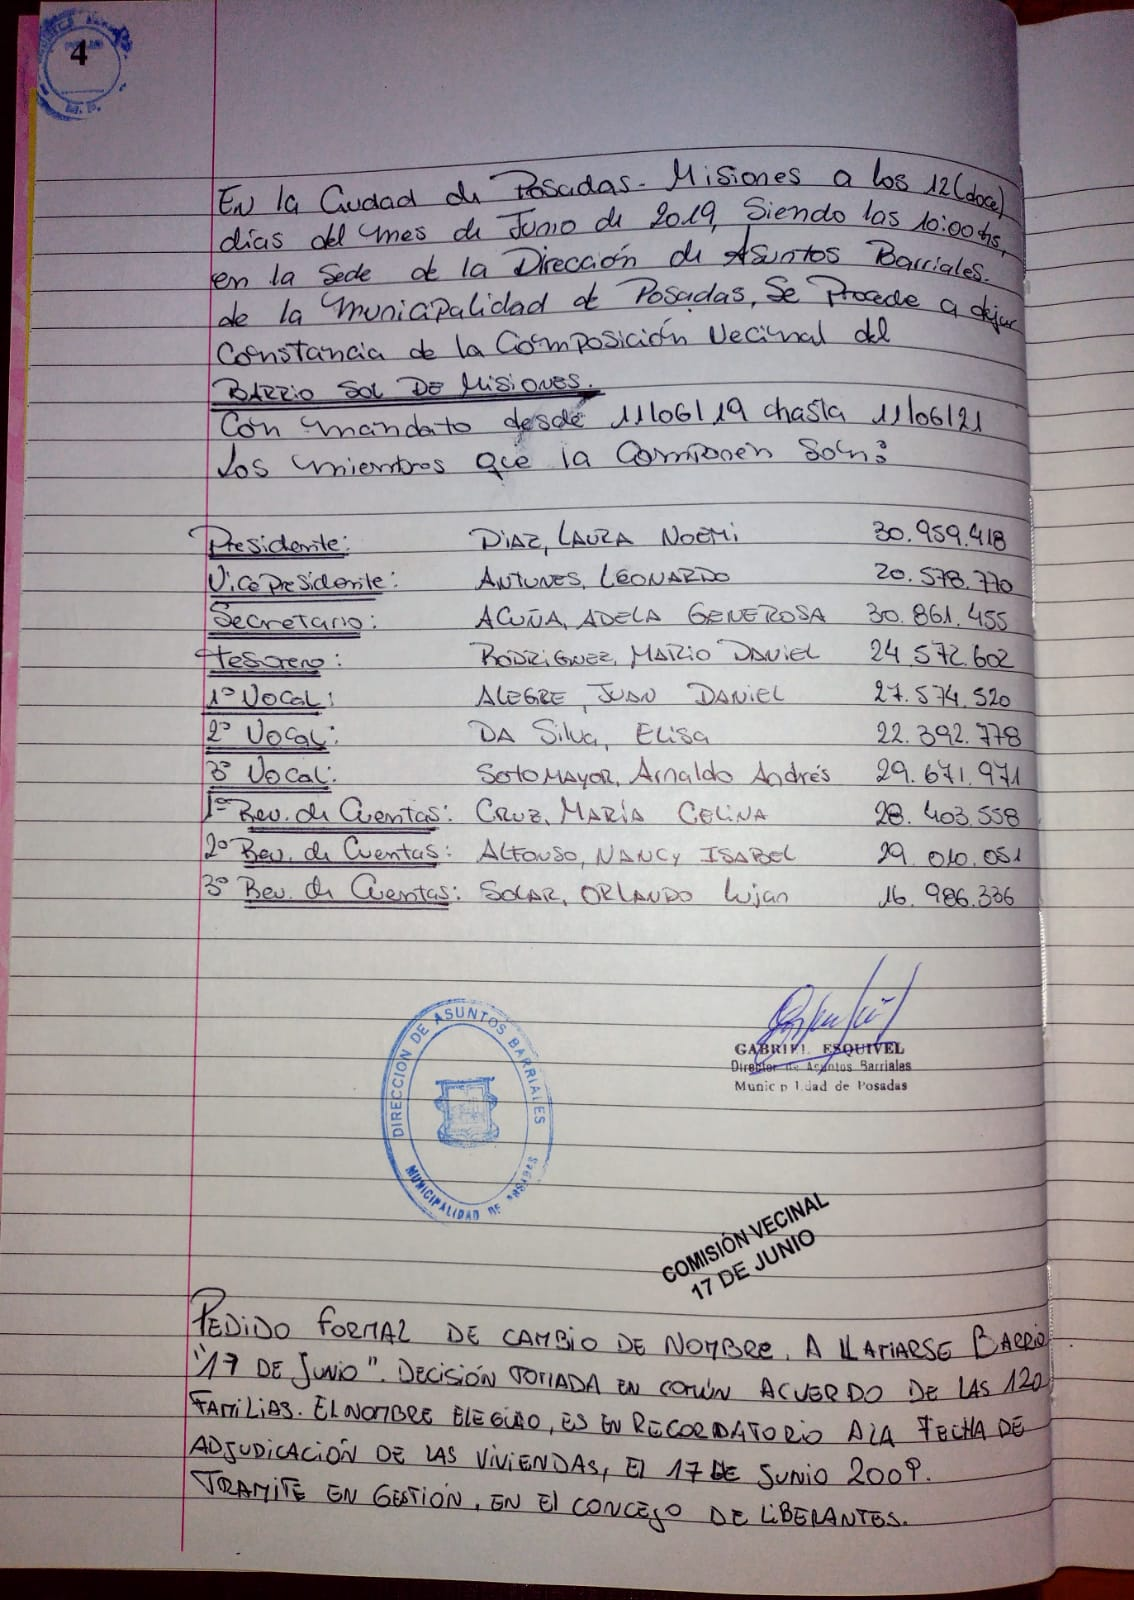 4
En la Ciudad de Posadas - Misiones a los 12 (doce)
días del mes de Junio de 2019, Siendo las 10:00 hs,
en la Sede de la Dirección de Asuntos Barriales.
de la Municipalidad de Posadas, Se Procede a dejar
Constancia de la Composición Vecinal del
BARRIO SOL DE MISIONES.
Con mandato desde 11/06/19 hasta 11/06/21
Los miembros que la Componen Son:
Presidente: DIAZ, LAURA NOEMI 30.959.418
Vice presidente: ANTUNES, LEONARDO 20.578.770
Secretario: ACUÑA, ADELA GENEROSA 30.861.455
Tesorero: RODRIGUEZ, MARIO DANIEL 24.572.602
1º Vocal: ALEGRE, JUAN DANIEL 27.574.520
2º Vocal: DA Silva, Elisa 22.392.778
3º Vocal: SotoMAYOR, Arnaldo Andrés 29.671.971
1º Rev. de Cuentas: CRUZ, MARÍA CELINA 28.403.558
2º Rev. de Cuentas: ALFONSO, NANCY ISABEL 29.010.051
3º Rev. de Cuentas: SOLAR, ORLANDO Lujan 16.986.336
DIRECCION DE ASUNTOS BARRIALES
MUNICIPALIDAD DE POSADAS
GABRIEL ESQUIVEL
Director de Asuntos Barriales
Municipalidad de Posadas
COMISIÓN VECINAL
17 DE JUNIO
PEDIDO FORMAL DE CAMBIO DE NOMBRE. A LLAMARSE BARRIO
"17 DE JUNIO". DECISIÓN TOMADA EN COMÚN ACUERDO DE LAS 120
FAMILIAS. EL NOMBRE ELEGIDO, ES EN RECORDATORIO A LA FECHA DE
ADJUDICACIÓN DE LAS VIVIENDAS, EL 17 DE JUNIO 2009.
TRAMITE EN GESTIÓN, EN EL CONCEJO DE LIBERANTES.